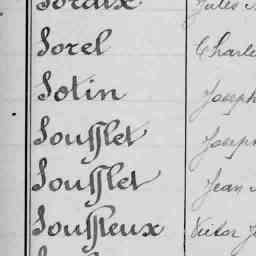 Soraux Jules
Sorel Charle
Sotin Joseph
Soufflet Joseph
Soufflet Jean
Souffleux Victor J